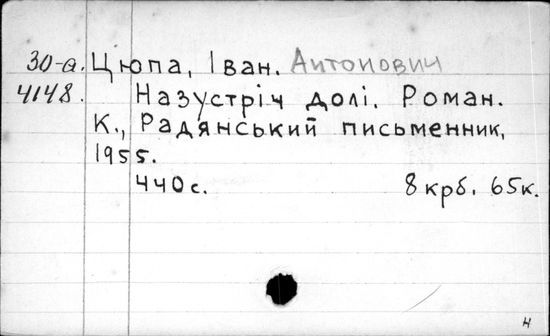 30-а. Цюпа, Іван. Антонович
4148. Назустріч долі. Роман.
К., Радянський письменник,
1955.
440с. 8крб. 65к.
н